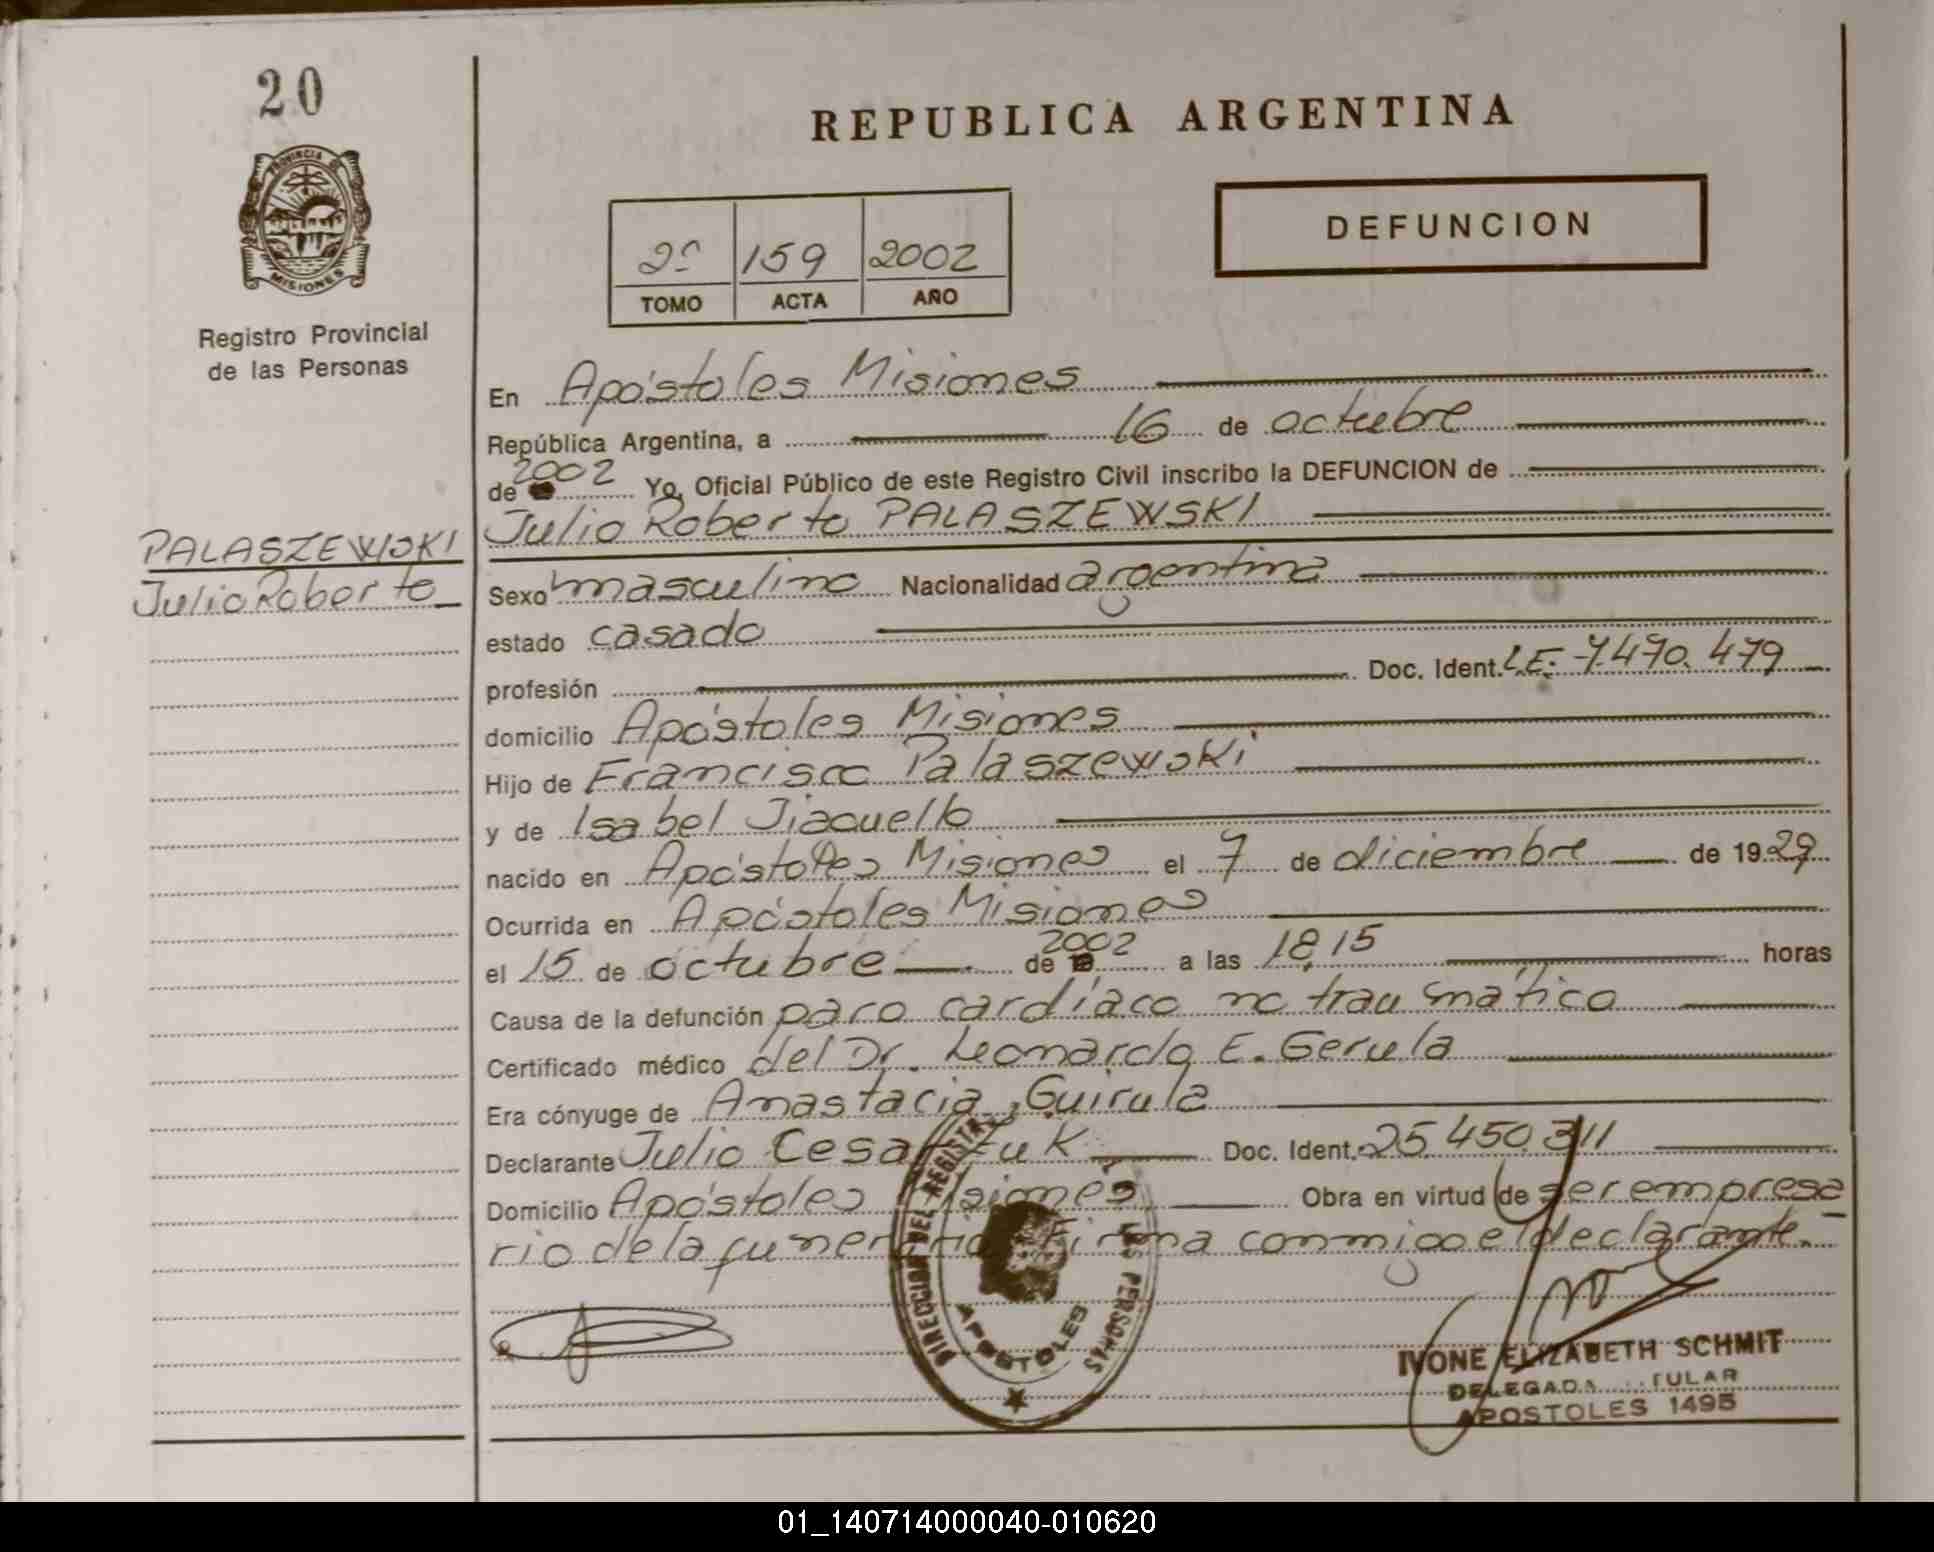 20
PROVINCIA DE
MISIONES
Registro Provincial
de las Personas
PALASZEWSKI
Julio Roberto
REPUBLICA ARGENTINA
DEFUNCION
2º 159 2002
TOMO ACTA AÑO
En Apóstoles Misiones
República Argentina, a 16 de octubre
de 2002 Yo, Oficial Público de este Registro Civil inscribo la DEFUNCION de
Julio Roberto PALASZEWSKI
Sexo masculino Nacionalidad argentina
estado casado
profesión Doc. Ident. L.E. 7.470.479
domicilio Apóstoles Misiones
Hijo de Francisco Palaszewski
y de Isabel
nacido en Apóstoles Misiones el 7 de diciembre de 1929
Ocurrida en Apóstoles Misiones
el 15 de octubre de 2002 a las 18,15 horas
Causa de la defunción paro cardíaco no traumático
Certificado médico del Dr. Leonardo E. Gerula
Era cónyuge de Anastacia Guirula
Declarante Julio Cesar Doc. Ident. 25.450.311
Domicilio Apóstoles Misiones Obra en virtud de ser empresa
rio de la funeraria. Firma conmigo el declarante.-
DIRECCION DEL REGISTRO LAS PERSONAS
APOSTOLES
IVONE ELIZABETH SCHMIT
DELEGADA TITULAR
APOSTOLES 1495
01_140714000040-010620